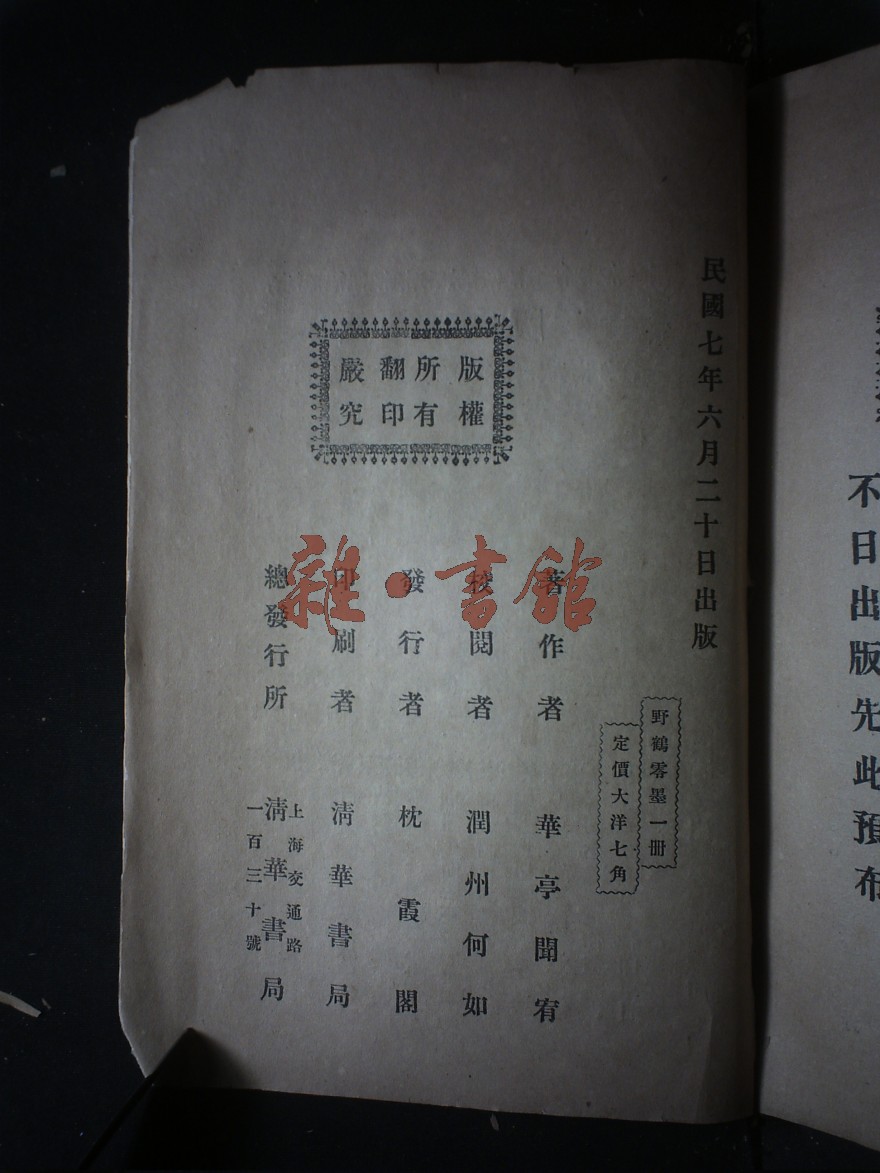 不日出版先此預布
民國七年六月二十日出版
版權
所有
翻印
嚴究
野鶴零墨一冊
定價大洋七角
著作者 華亭聞宥
校閱者 潤州何如
發行者 枕霞閣
印刷者 清華書局
總發行所 上海交通路
清華書局
一百三十號
雜·書館